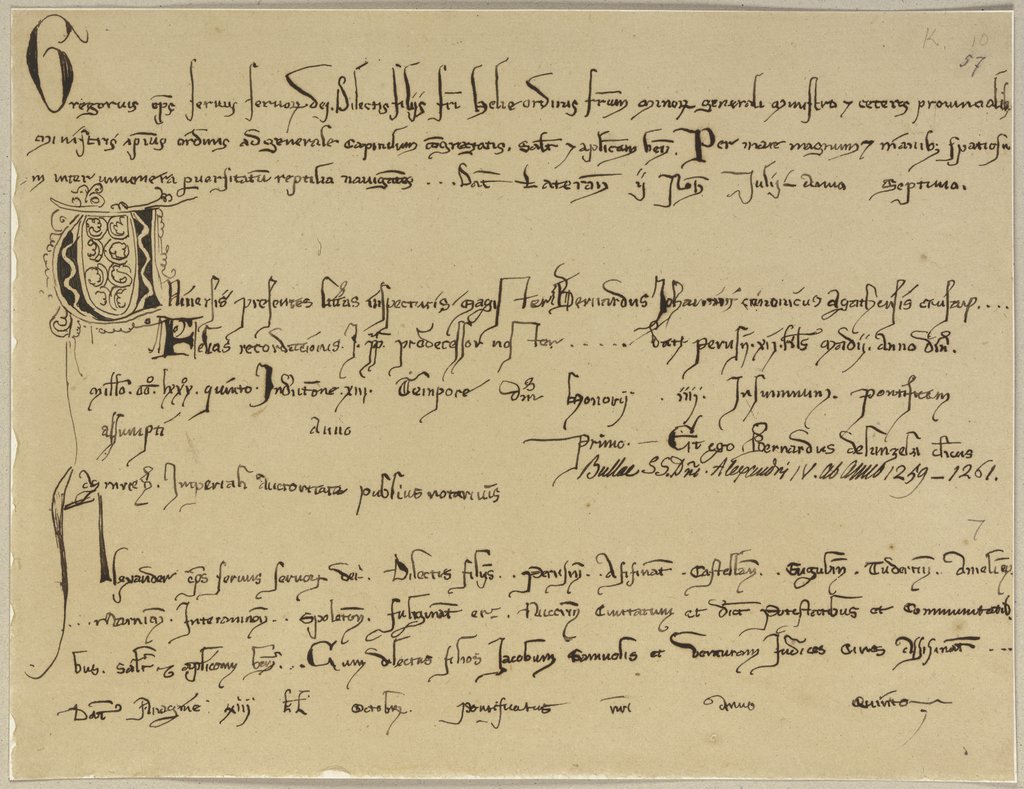 K. 10
57
Gregorius eps servus servor dei. Dilectis filiis fri Helie ordinis frum minor generali ministro 7 ceteris provincialib
ministris ipsius ordinis ad generale Capitulum cogregatis. Salt 7 aplicam ben. Per mare magnum 7 manib; spatiosu
in inter innumera perversitatu reptilia navigates ... Dat Lateran ij Non Julij anno septimo.
Universis presentes litras inspecturis magister Bernardus Johannini canonicus Agathensis
Felicis recordationis. J. pp. predecessor noster ...... Dat perusij. xij. kls Madii. Anno dni.
millo. cco. lxxx. quinto. Indictone. xiii. Tempore dni Honorij . iiij. In summum. pontificem
assumpti Anno primo. — Et ego Bernardus de clicus
Imperiali Auctoritate publius notarius
Bullae S.S. Dni. Alexandri IV. ab anno 1259 – 1261.
7
Alexander eps servus servor dei. Dilectis filijs . . Perusin. Asisinat . Castellan . . Eugubin . Tudertin . Amelien
... Narnien. Interamnen. Spoletan. fulginat et . Nucerin Civitatum et dict Potestatibus et Communitatib
bus. Salt 7 aplicam ben ... Cum dilectos filios Jacobum Samuelis et Venturam Judices Cives Assisinat ...
Dat Anagnie xiij kl Octobr. Pontificatus nri Anno Quinto